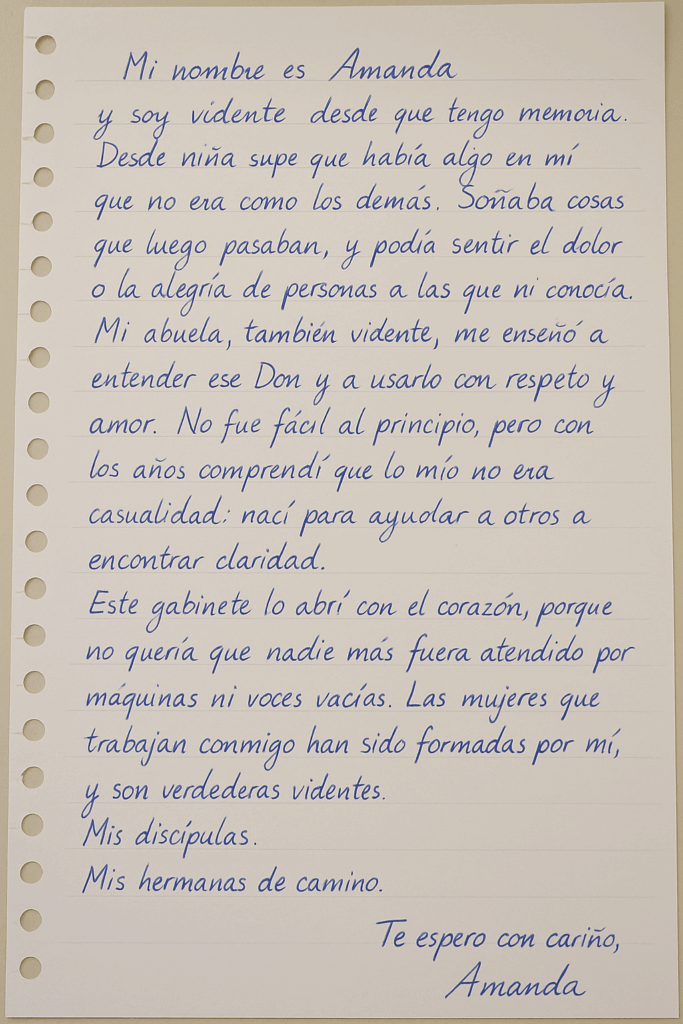 Mi nombre es Amanda
y soy vidente desde que tengo memoria.
Desde niña supe que había algo en mí
que no era como los demás. Soñaba cosas
que luego pasaban, y podía sentir el dolor
o la alegría de personas a las que ni conocía.
Mi abuela, también vidente, me enseñó a
entender ese Don y a usarlo con respeto y
amor. No fue fácil al principio, pero con
los años comprendí que lo mío no era
casualidad: nací para ayudar a otros a
encontrar claridad.
Este gabinete lo abrí con el corazón, porque
no quería que nadie más fuera atendido por
máquinas ni voces vacías. Las mujeres que
trabajan conmigo han sido formadas por mí,
y son verdederas videntes.
Mis discípulas.
Mis hermanas de camino.
Te espero con cariño,
Amanda